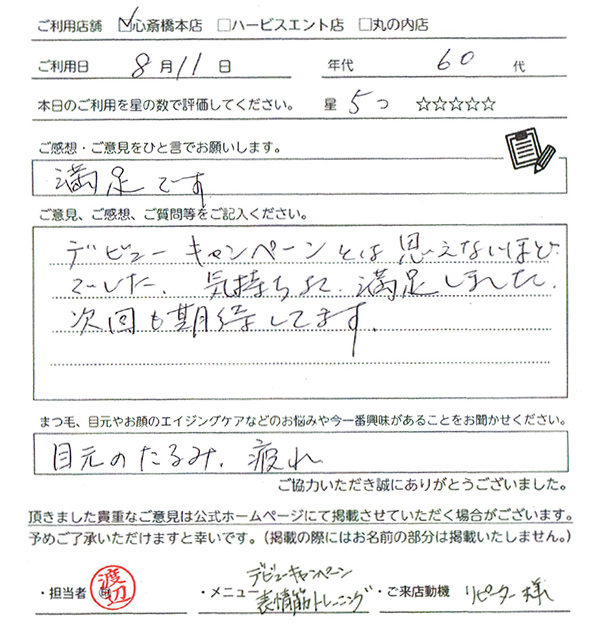 ご利用店舗 ☑心斎橋本店 □ハービスエント店 □丸の内店
ご利用日 8月11日 年代 60代
本日のご利用を星の数で評価してください。 星 5つ ☆☆☆☆☆
ご感想・ご意見をひと言でお願いします。
満足です
ご意見、ご感想、ご質問等をご記入ください。
デビューキャンペーンとは思えないほど
でした、気持ちよく、満足しました、
次回も期待してます。
まつ毛、目元やお顔のエイジングケアなどのお悩みや今一番興味があることをお聞かせください。
目元のたるみ、疲れ
ご協力いただき誠にありがとうございました。
頂きました貴重なご意見は公式ホームページにて掲載させていただく場合がございます。
予めご了承いただけますと幸いです。(掲載の際にはお名前の部分は掲載いたしません。)
デビューキャンペーン
・担当者 渡辺 ・メニュー 表情筋トレーニング ・ご来店動機 リピーター様